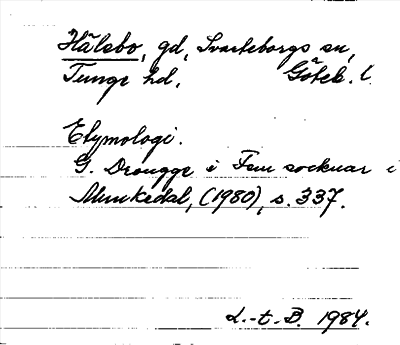 Hålebo, gd, Svarteborgs sn,
Tunge hd, Göteb. l.
Etymologi.
G. Drougge i Fem socknar i
Munkedal, (1980), s. 337.
L.-t. B. 1984.